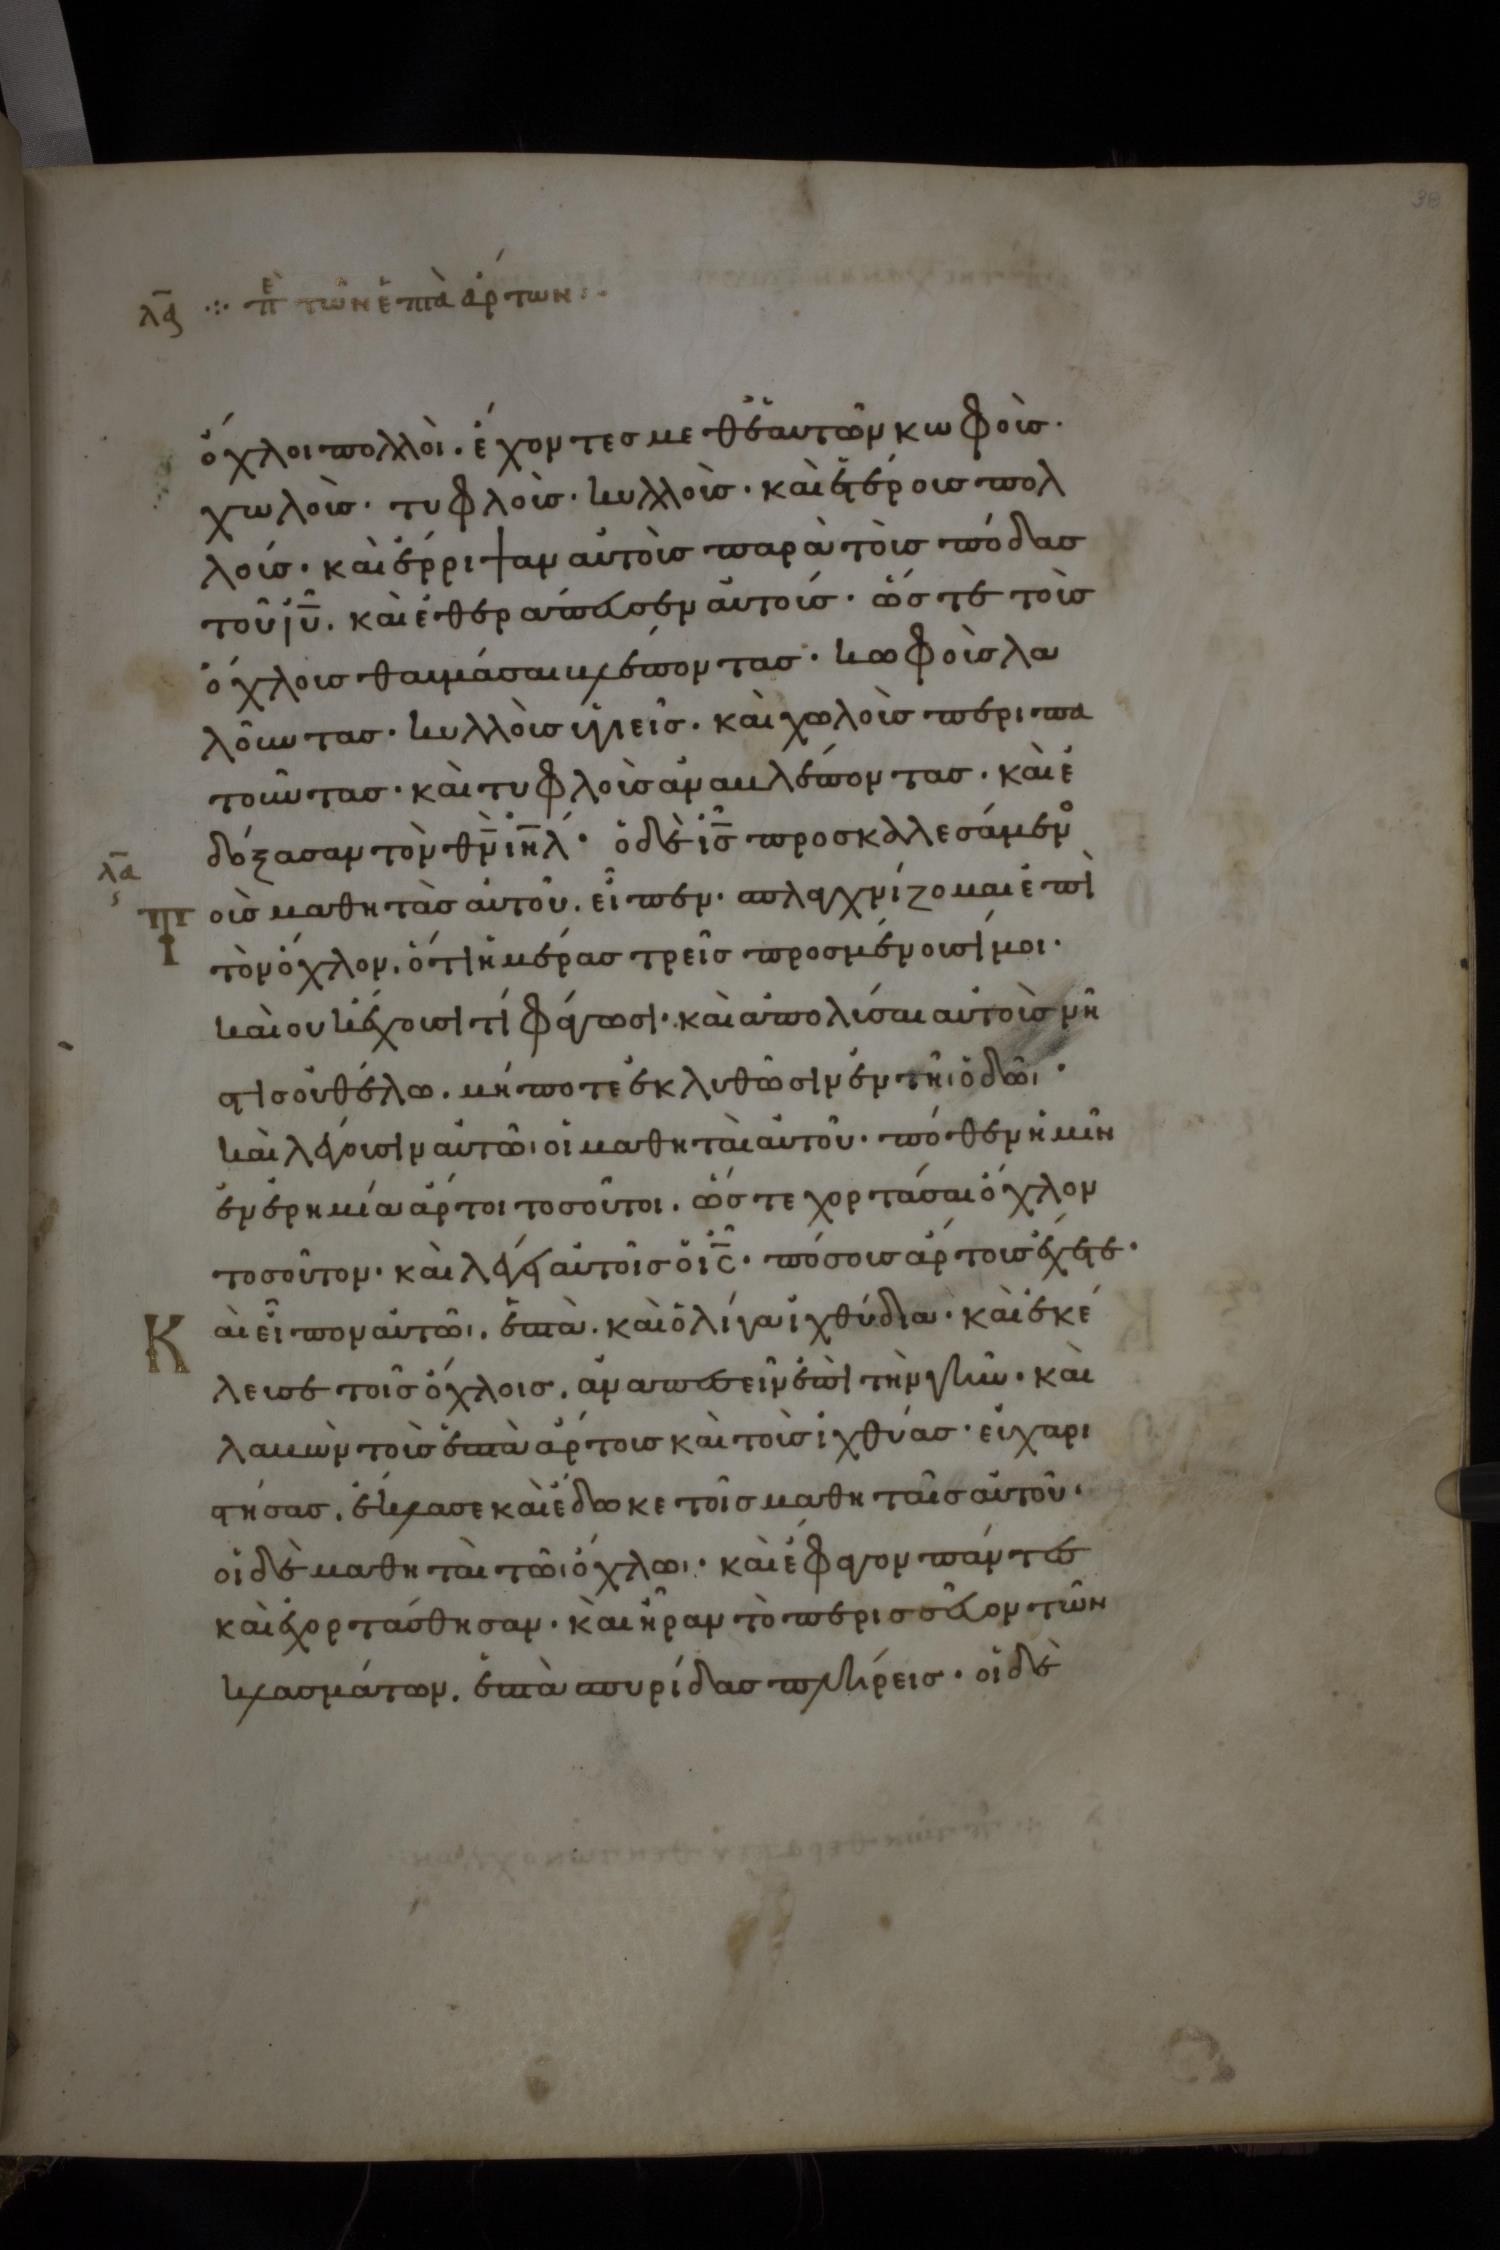 λα ⁘ πε τῶν ἑπτὰ ἄρτων:·
ὄχλοι πολλοὶ. ἔχοντες μεθ ἑαυτῶν κωφοὺς·
χωλοὺς· τυφλοὺς· κυλλοὺς· καὶ ἑτέρους πολ
λούς· καὶ ἔρριψαν αὐτοὺς παρὰ τοὺς πόδας
τοῦ ἰῦ. καὶ ἐθεράπευσεν αὐτούς· ὥστε τοὺς
ὄχλους θαυμάσαι βλέποντας· κωφοὺς λα
λοῦντας· κυλλοὺς ὑγιεῖς. καὶ χωλοὺς περιπα
τοῦντας· καὶ τυφλοὺς ἀναβλέποντας. καὶ ἐ
δόξασαν τὸν θ̅ν̅ ἰ̅η̅λ̅· ὁ δὲ ἰ̅ς̅ προσκαλλεσάμενος
λα Τοὺς μαθητὰς αὐτοῦ. εἶπεν· σπλαγχνίζομαι ἐπὶ
τὸν ὄχλον. ὅτι ἡμέρας τρεῖς προσμένουσί μοι·
καὶ οὐκ ἔχουσι τί φάγωσι· καὶ ἀπολύσαι αὐτοὺς νή
στις οὐ θέλω. μήποτε ἐκλυθῶσιν ἐν τῆι ὁδῶι·
καὶ λέγουσιν αὐτῶι οἱ μαθηταὶ αὐτοῦ· πόθεν ἡμῖν
ἐν ἐρημία ἄρτοι τοσοῦτοι. ὥστε χορτάσαι ὄχλον
τοσοῦτον· καὶ λέγει αὐτοῖς ὁ ἰ̅ς̅· πόσους ἄρτους ἔχετε·
Καὶ εἶπον αὐτῶι. ἑπτὰ. καὶ ὀλίγα ἰχθύδια· καὶ ἐκέ
λευσε τοῖς ὄχλοις. ἀναπεσεῖν ἐπὶ τὴν γῆν· καὶ
λαβὼν τοὺς ἑπτὰ ἄρτους καὶ τοὺς ἰχθύας· εὐχαρι
στήσας. ἔκλασε καὶ ἔδωκε τοῖς μαθηταῖς αὐτοῦ·
οἱ δὲ μαθηταὶ τῶι ὄχλωι· καὶ ἔφαγον πάντες
καὶ ἐχορτάσθησαν· καὶ ἦραν τὸ περισσεῦον τῶν
κλασμάτων. ἑπτὰ σπυρίδας πλήρεις· οἱ δὲ